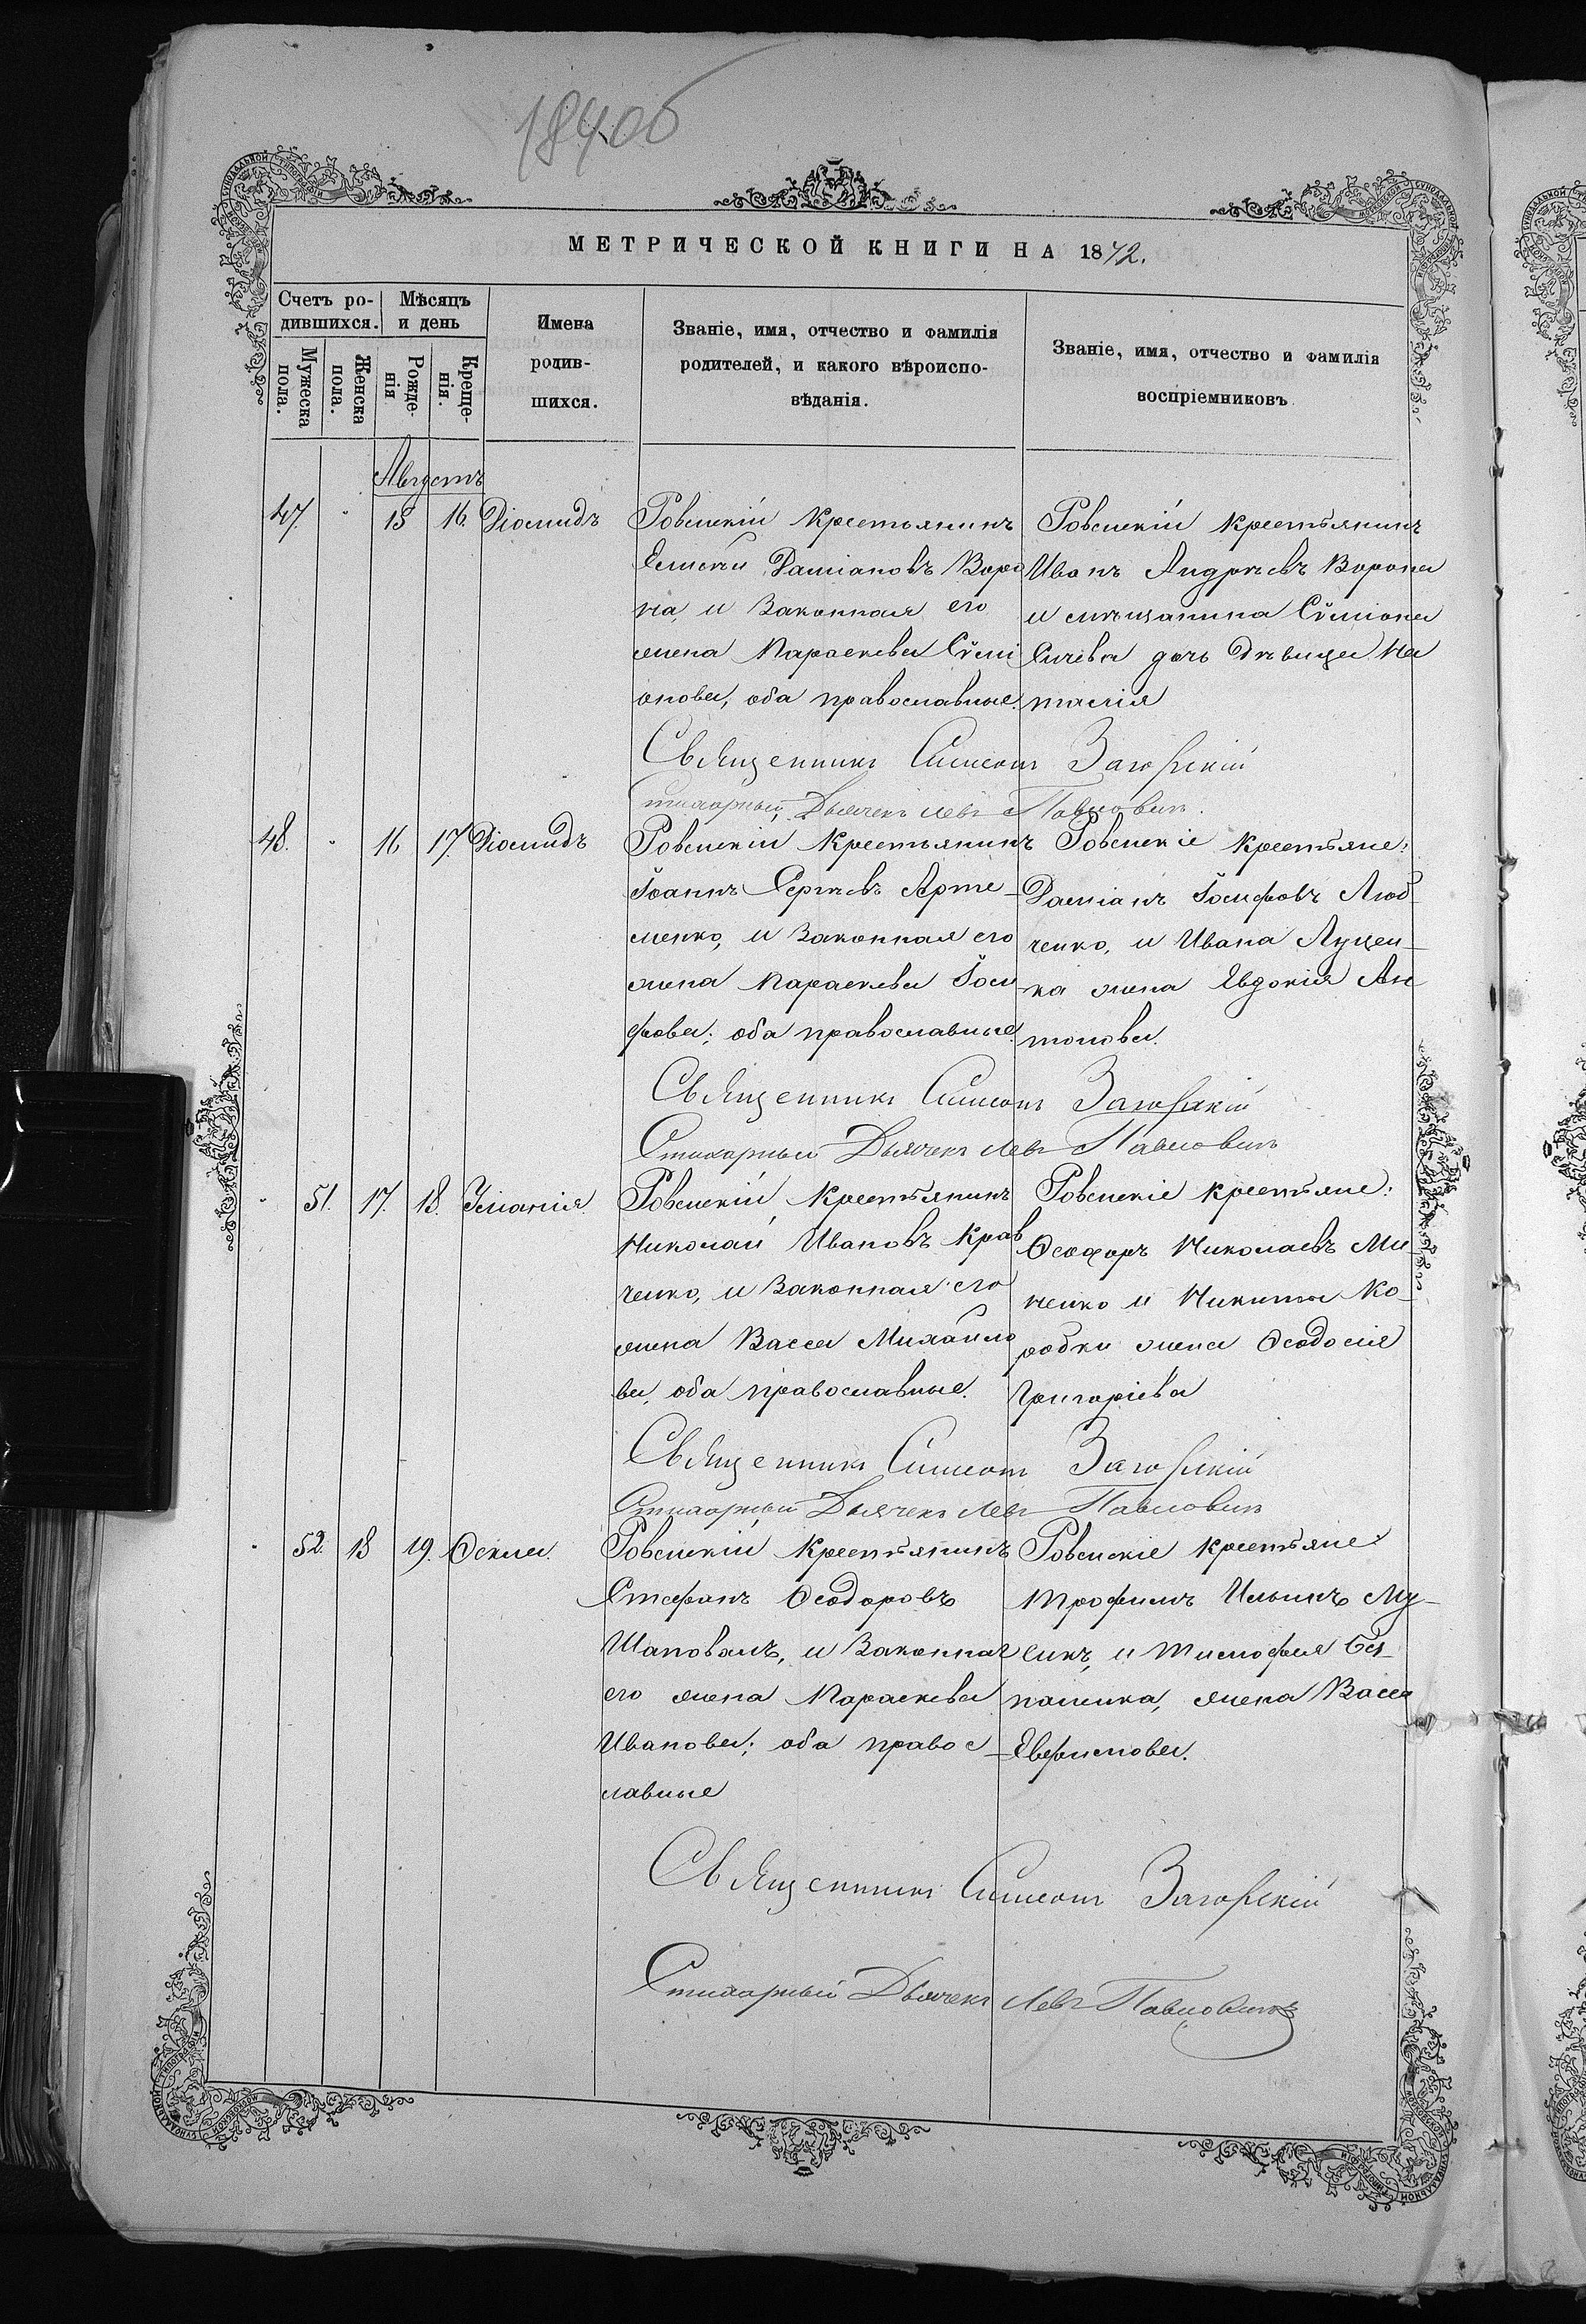 1840б
МЕТРИЧЕСКОЙ КНИГИ НА 1872.
Счетъ родившихся.
Мужеска пола.
Женска пола.
Мѣсяцъ и день
Рожденія
Крещенія.
Имена родившихся.
Званіе, имя, отчество и фамилія родителей, и какого вѣроисповѣданія.
Званіе, имя, отчество и фамилія воспріемниковъ
Августъ
47. 15 16. Діомидъ
Ровенскій крестьянинъ
Даміановъ Воро
на, и законная его
жена Параскева Сѵмі
онова, оба православные.
Ровенскій крестьянинъ
Иванъ Андреевъ Ворона
и мѣщанина Сѵміона
дочь Дѣвица На
талія
Священникъ Симеонъ Загорскій
Стихарный Дьячекъ Левъ Павловичъ.
48. 16 17. Діомидъ
Ровенскій крестьянинъ
Іоаннъ Сергѣевъ Арте-
менко, и законная его
жена Параскева Іоси
фова; оба православные.
Ровенскіе крестьяне:
Даміанъ Іосифовъ Люб-
ченко, и Ивана Луцен-
ка жена Евдокія Ан-
тонова.
Священникъ Симеонъ Загорскій
Стихарный Дьячекъ Левъ Павловичъ
51. 17. 18. Уліанія.
Ровенскій крестьянинъ
Николай Ивановъ Крав
ченко, и законная его
жена Васса Михайло
ва, оба православные.
Ровенскіе крестьяне:
Ѳеодоръ Николаевъ Ми
ненко и Никиты Ко-
робки жена Ѳеодосія
Григоріева
Священникъ Симеонъ Загорскій
Стихарный Дьячекъ Левъ Павловичъ
52. 18 19. Ѳекла.
Ровенскій крестьянинъ
Стефанъ Ѳеодоровъ
Шаповалъ, и законная
его жена Параскева
Иванова; оба правос-
лавные
Ровенскіе крестьяне:
Трофимъ Ильинъ Лу-
Тимофея
жена Васса
Евфимова.
Священникъ Симеонъ Загорскій
Стихарный Дьячекъ Левъ Павловичъ